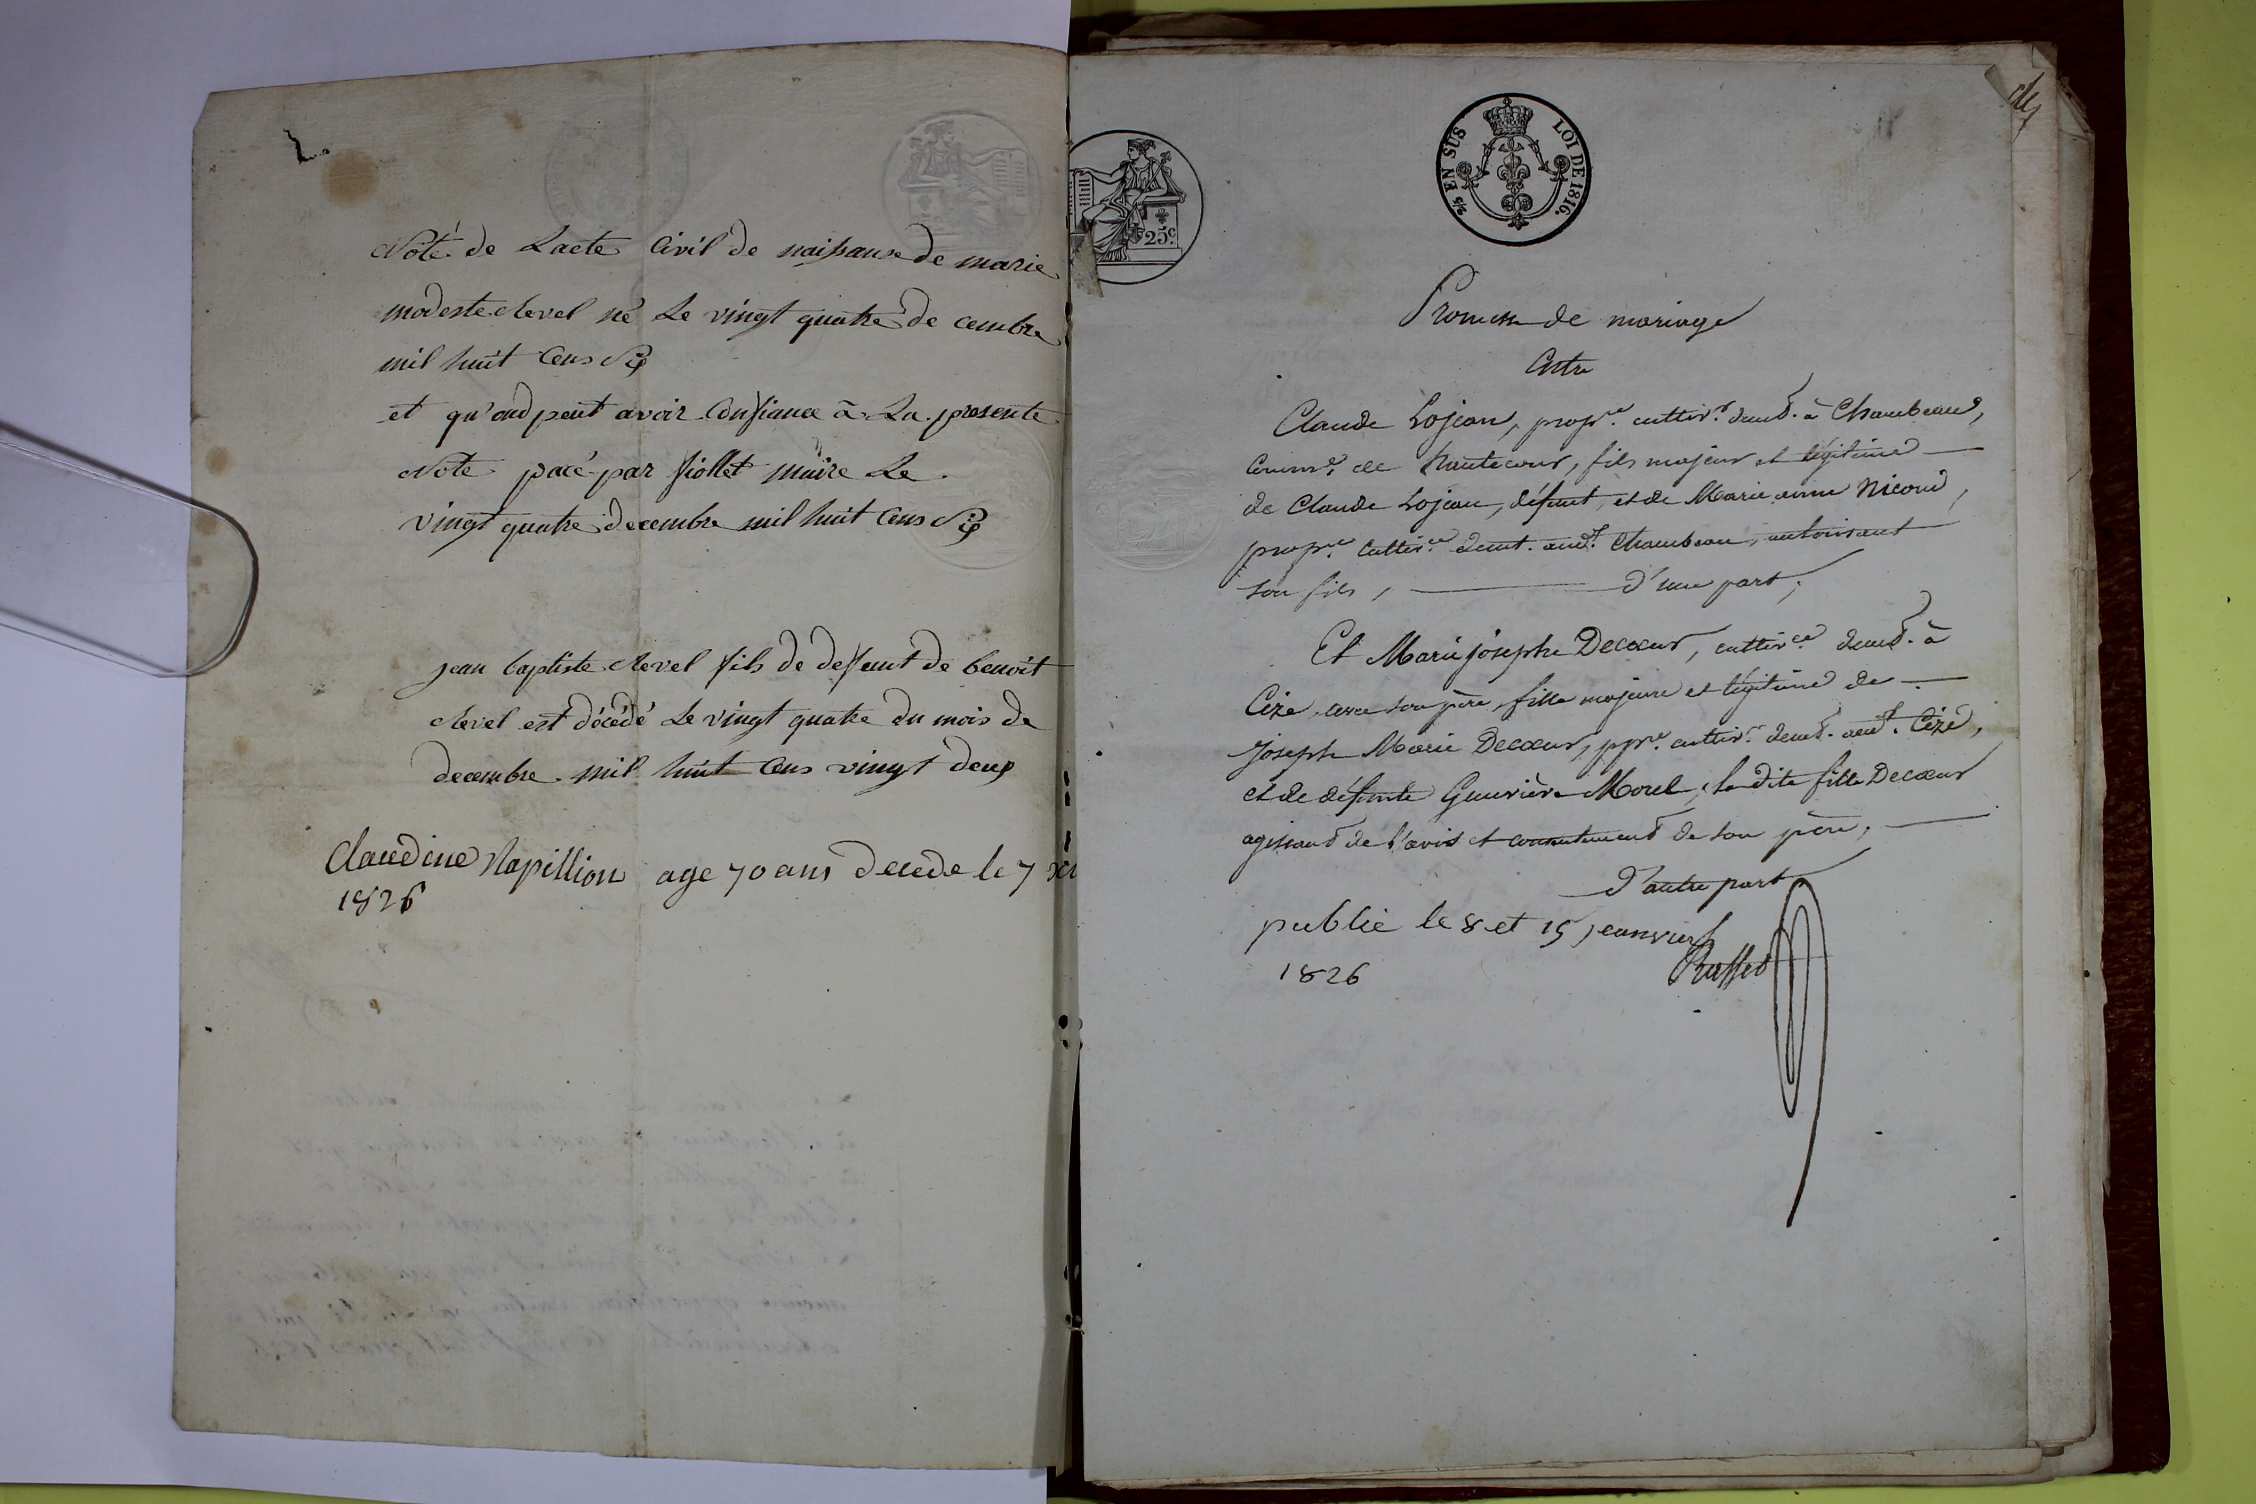 Note de Lacte Civil de naissance de marie
modeste clevel né Le vingt quatre de cembre
mil huit Cens Six
et qu'ond peut avoir Confiance à La presente
Note pacé par fiollet maire Le
vingt quatre decembre mil huit Cens Six
jean baptiste clevel fils de deffeunt de benoit
clevel est décédé Le vingt quatre du mois de
decembre mil huit Cens vingt deux
Claudine Napillion age 70 ans decede le 7
1826
EN SUS LOI DE 1816.
25c.
Promesse de mariage
Entre
Claude Lojean, propre. cultivr. demt. à Chambeau,
Comme. de hautecour, fils majeur et légitime
de Claude Lojean, défunt, et de Marie anne Nicoud,
propre. cultivce. demt. audt. Chambeau, autorisant
son fils, d'une part,
Et Marie josephe Decœur, cultivce. demt. à
Cize, avec son père, fille majeure et légitime de
Joseph Marie Decœur, ppre. cultivr. demt. audt. Cize,
et de défunte Genevièvre Morel, la dite fille Decœur
agissant de l'avis et consentement de son père,
d'autre part
publié le 8 et 15 jeanvier
1826